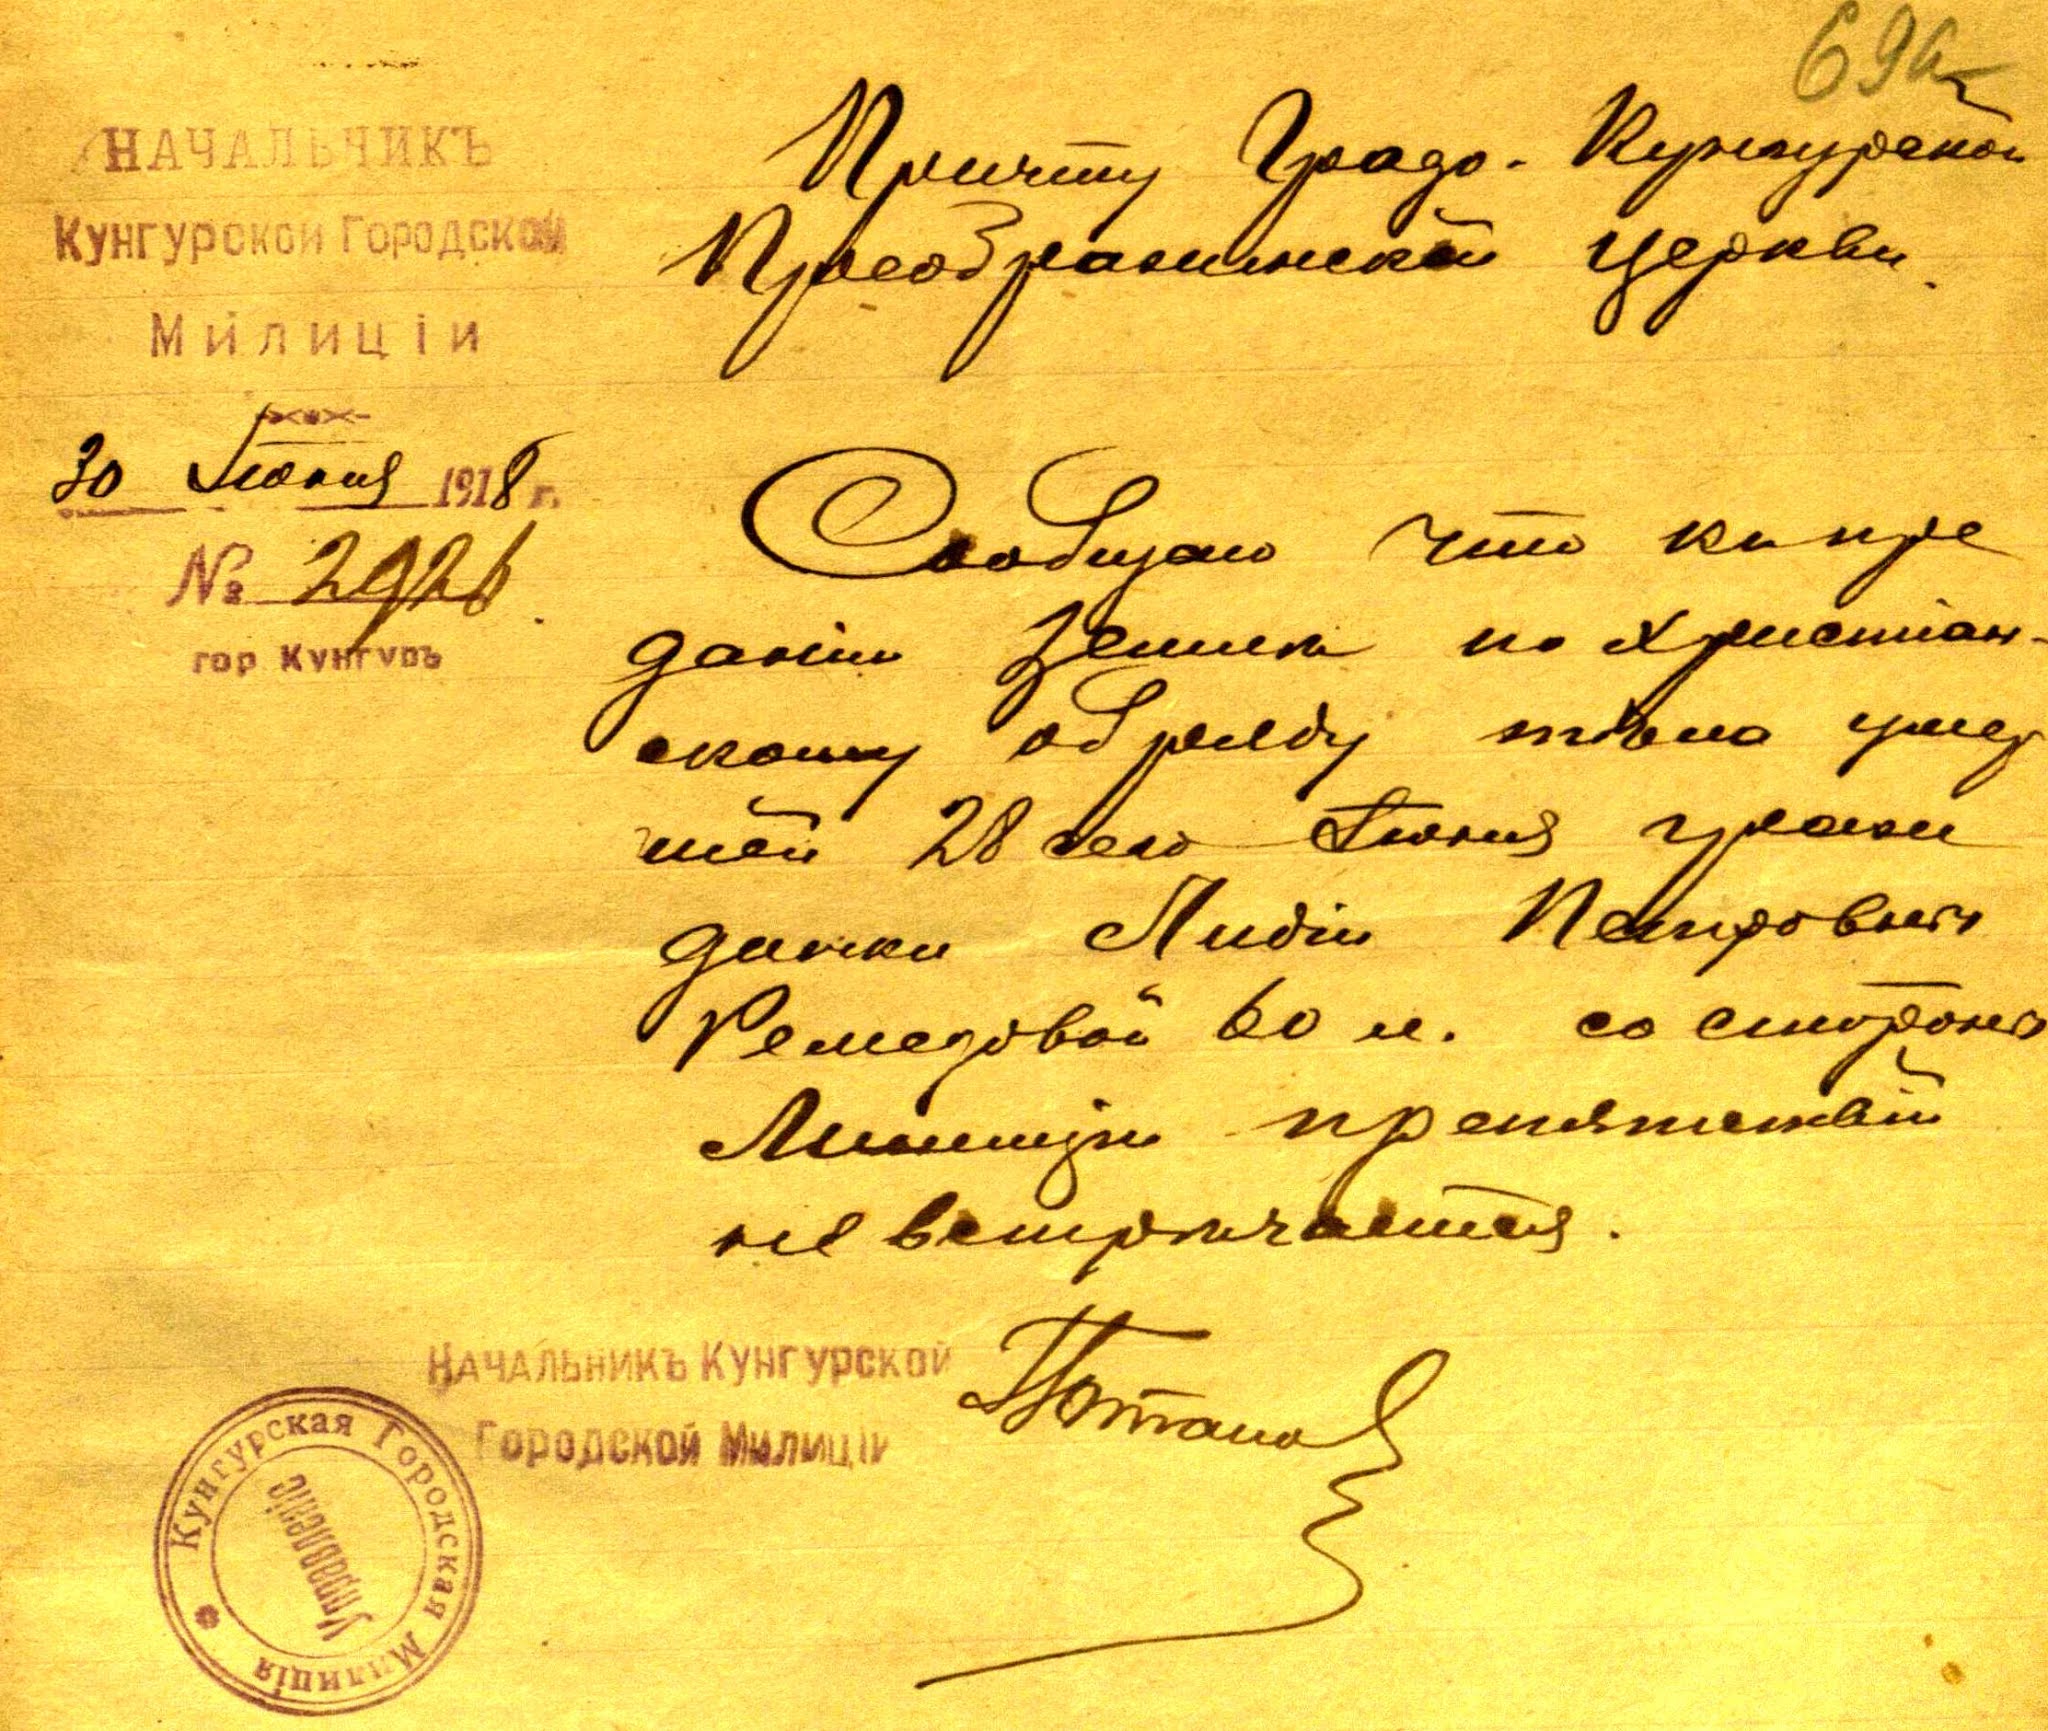 69а
НАЧАЛЬНИКЪ
Кунгурской Городской
Милиціи
30 Іюня 1918 г.
№ 2926
гор Кунгуръ
Причту Градо-Кунгурской
Преображенской Церкви.
Сообщаю что къ пре
данію земли по Христіан-
скому обряду тѣла умер
шей 28 сего Іюня граж
данки Лидіи Петровны
60 л. со стороны
Милиціи препятствій
не встрѣчается.
Начальникъ Кунгурской
Городской Милиціи
Потапов
Кунгурская Городская Милиція
Управленіе